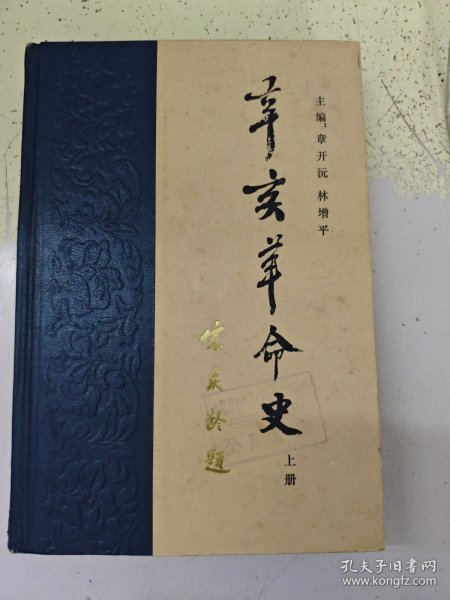 主编：章开沅 林增平
辛亥革命史
上册
宋庆龄题
孔夫子旧书网
www.kongfz.com